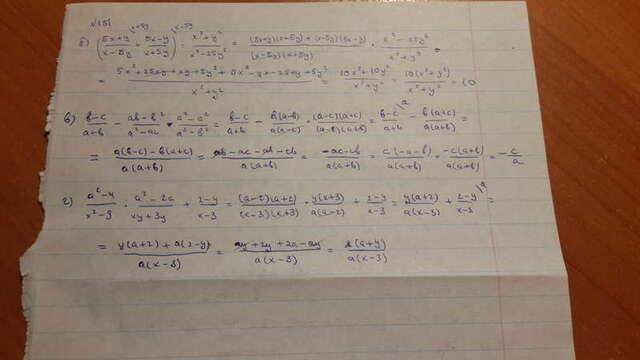 №151
б) ((5x+y)/(x-5y) \x+5y + (5x-y)/(x+5y) \x-5y) : (x²+y²)/(x²-25y²) = ((5x+y)(x+5y)+(x-5y)(5x-y))/((x-5y)(x+5y)) · (x²-25y²)/(x²+y²) =
= (5x²+25xy+xy+5y²+5x²-yx-25xy+5y²)/(x²+y²) = (10x²+10y²)/(x²+y²) = 10(x²+y²)/(x²+y²) = 10
в) (b-c)/(a+b) - (ab-b²)/(a²-ac) · (a²-c²)/(a²-b²) = (b-c)/(a+b) - b(a-b)/(a(a-c)) · (a-c)(a+c)/((a-b)(a+b)) = (b-c)/(a+b) \a - b(a+c)/(a(a+b)) =
= (a(b-c)-b(a+c))/(a(a+b)) = (ab-ac-ab-cb)/(a(a+b)) = (-ac-cb)/(a(a+b)) = c(-a-b)/(a(a+b)) = -c(a+b)/(a(a+b)) = -c/a
г) (a²-4)/(x²-9) : (a²-2a)/(xy+3y) + (2-y)/(x-3) = (a-2)(a+2)/((x-3)(x+3)) · y(x+3)/(a(a-2)) + (2-y)/(x-3) = y(a+2)/(a(x-3)) + (2-y)/(x-3) \a =
= (y(a+2)+a(2-y))/(a(x-3)) = (ay+2y+2a-ay)/(a(x-3)) = 2(a+y)/(a(x-3))